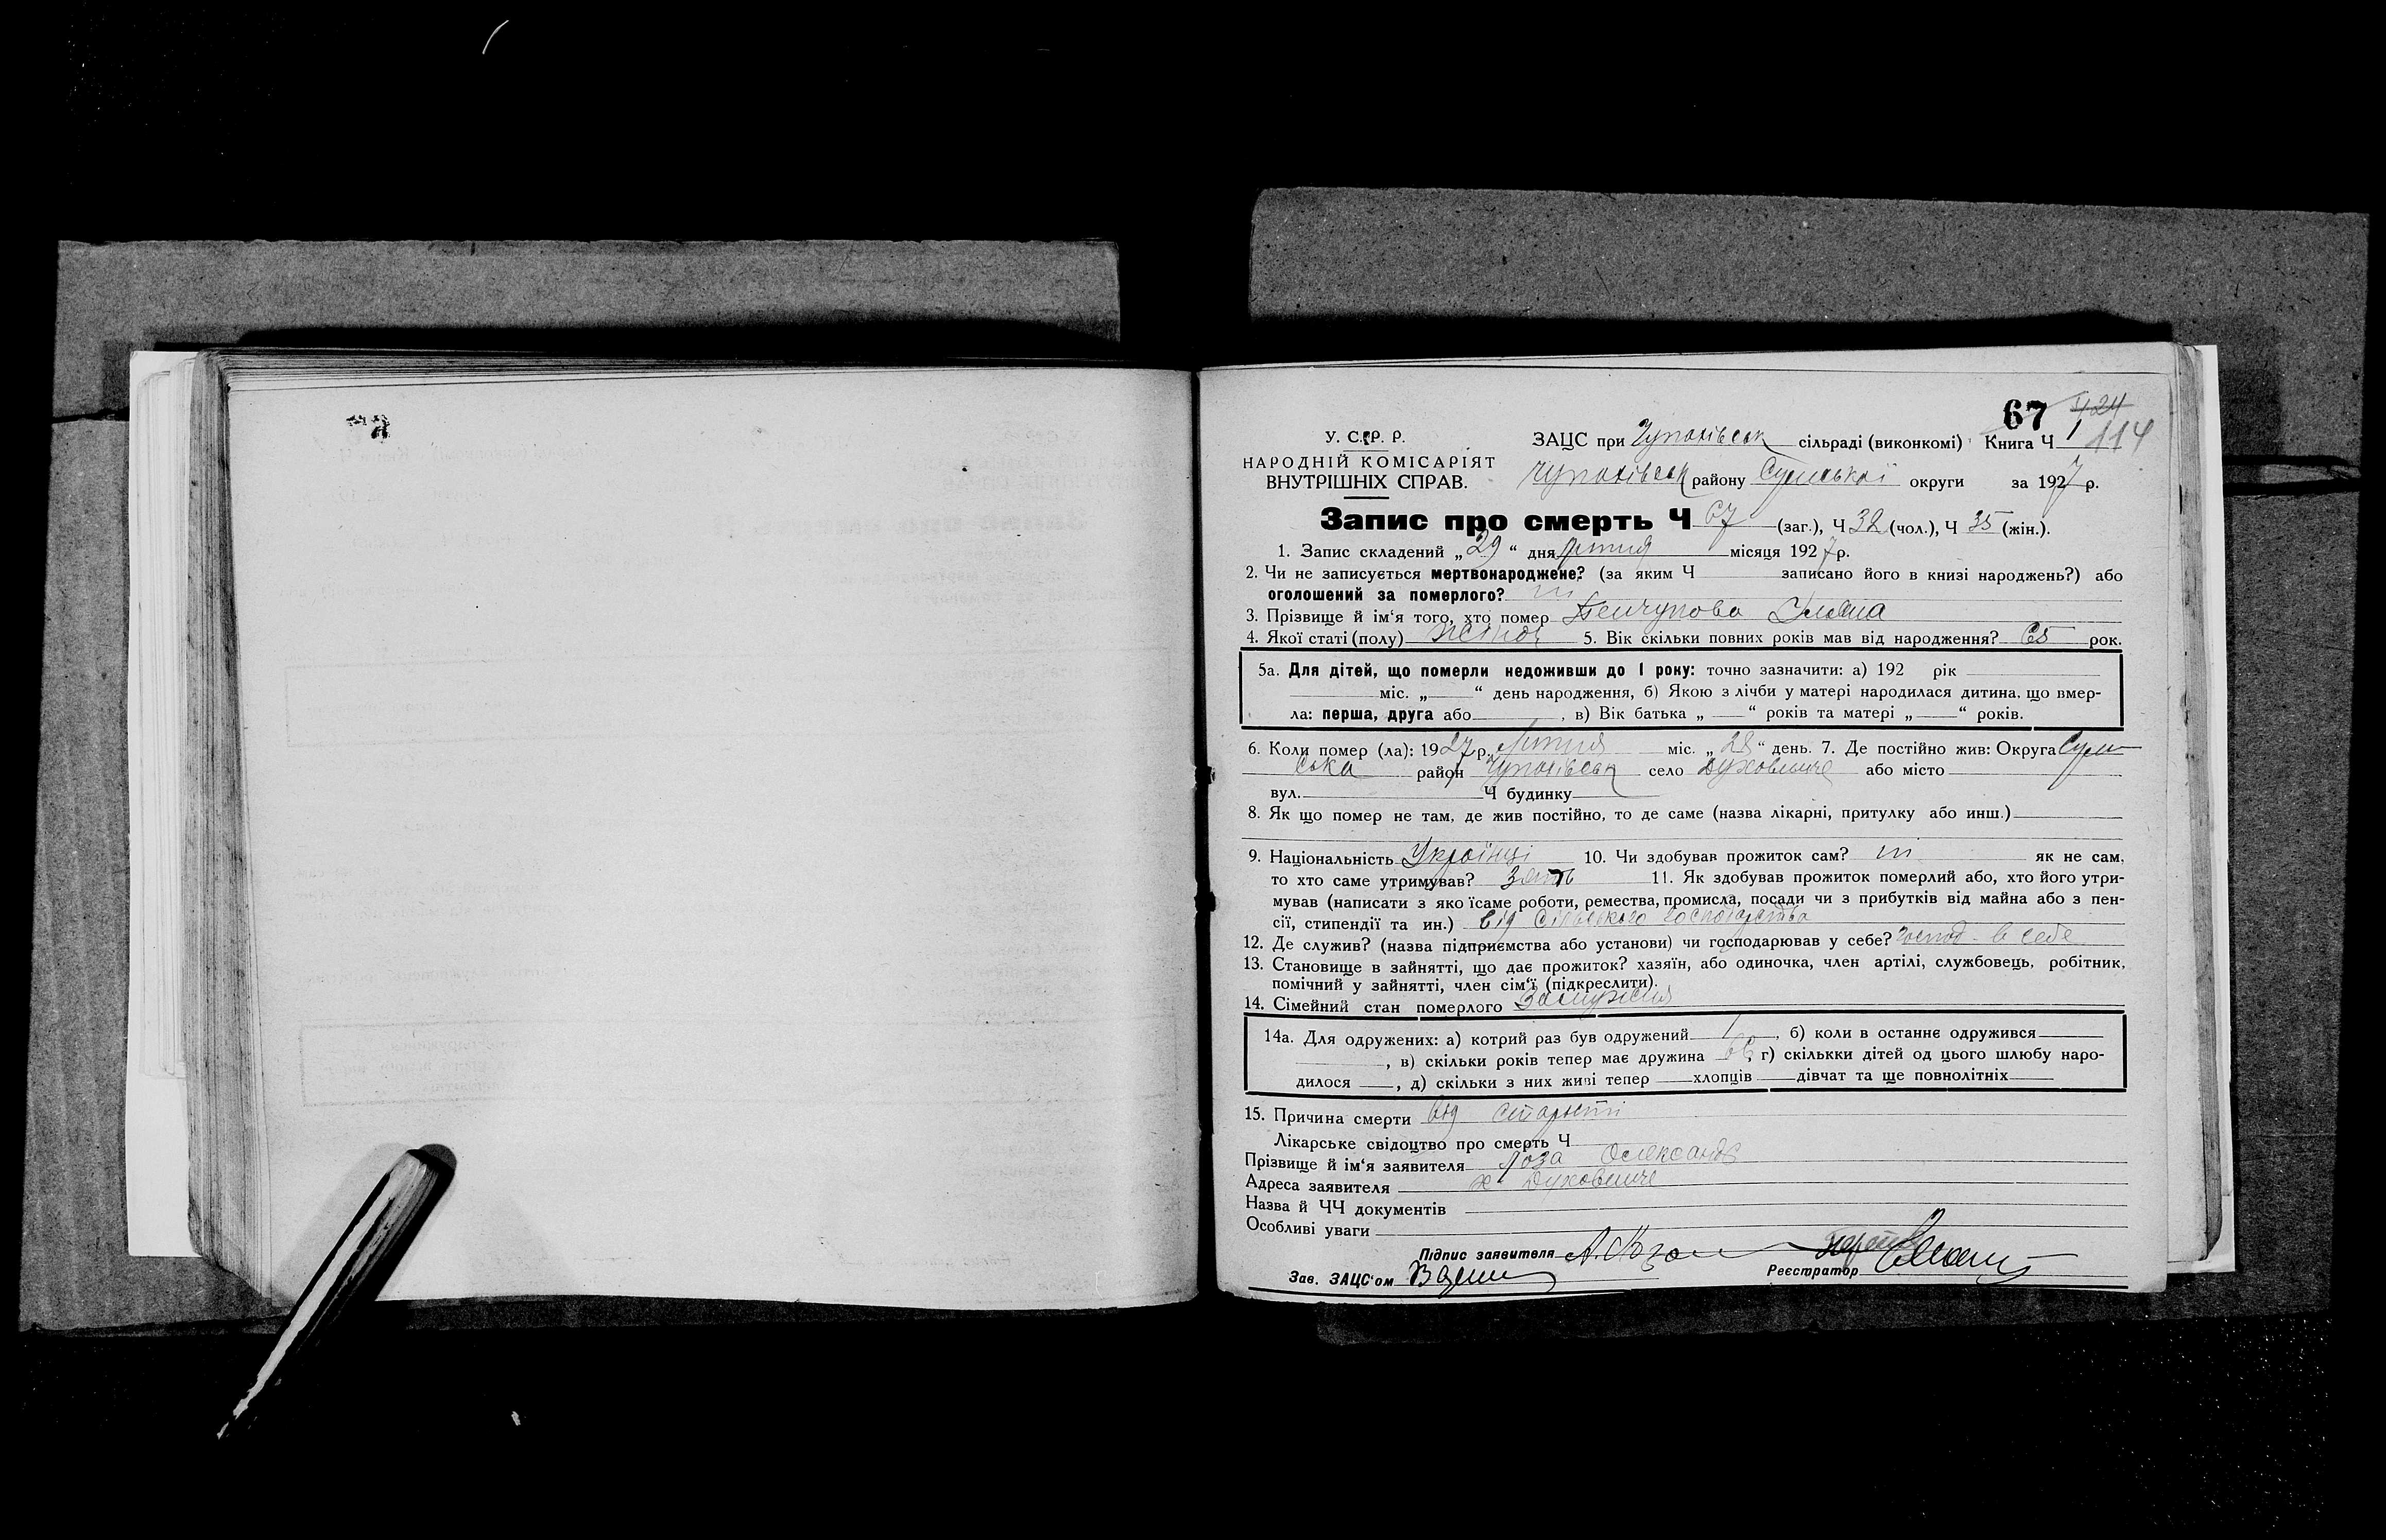 67 424
У. С. Р. Р. ЗАЦС при Чупахівськ сільраді (виконкомі) Книга Ч 1 114
НАРОДНІЙ КОМІСАРІЯТ
ВНУТРІШНІХ СПРАВ. Чупахівськ району Сумської округи за 1927 р.
Запис про смерть Ч 67 (заг.), Ч 32 (чол.), Ч 35 (жін.).
1. Запис складений „29“ дня лютня місяця 1927 р.
2. Чи не записується мертвонароджене? (за яким Ч записано його в книзі народжень?) або
оголошений за померлого? ні
3. Прізвище й ім‘я того, хто помер Уляна
4. Якої статі (полу) жіноч 5. Вік скільки повних років мав від народження? 65 рок.
5а. Для дітей, що померли недоживши до 1 року: точно зазначити: а) 192 рік
міс. „ “ день народження, б) Якою з лічби у матері народилася дитина, що вмер-
ла: перша, друга або , в) Вік батька „ “ років та матері „ “ років.
6. Коли помер (ла): 1927 р. лютня міс. „28“ день. 7. Де постійно жив: Округа Сум-
ська район Чупахівськ село Духовниче або місто
вул. Ч будинку
8. Як що помер не там, де жив постійно, то де саме (назва лікарні, притулку або инш.)
9. Національність Українці 10. Чи здобував прожиток сам? ні як не сам,
то хто саме утримував? Зять 11. Як здобував прожиток померлий або, хто його утри-
мував (написати з яко їсаме роботи, ремества, промисла, посади чи з прибутків від майна або з пен-
сії, стипендії та ин.) від сільського господарства
12. Де служив? (назва підприємства або установи) чи господарював у себе? господ. в себе
13. Становище в зайнятті, що дає прожиток? хазяїн, або одиночка, член артілі, службовець, робітник,
помічний у зайнятті, член сім‘ї (підкреслити).
14. Сімейний стан померлого Замужня
14а. Для одружених: а) котрий раз був одружений 1 , б) коли в останнє одружився
, в) скільки років тепер має дружина , г) скількки дітей од цього шлюбу наро-
дилося , д) скільки з них живі тепер хлопців дівчат та ще повнолітніх
15. Причина смерти від старости
Лікарське свідоцтво про смерть Ч
Прізвище й ім‘я заявителя Лоза Олександ
Адреса заявителя х Духовниче
Назва й ЧЧ документів
Особливі уваги
Підпис заявителя А. Лоза
Зав. ЗАЦС‘ом Реєстратор